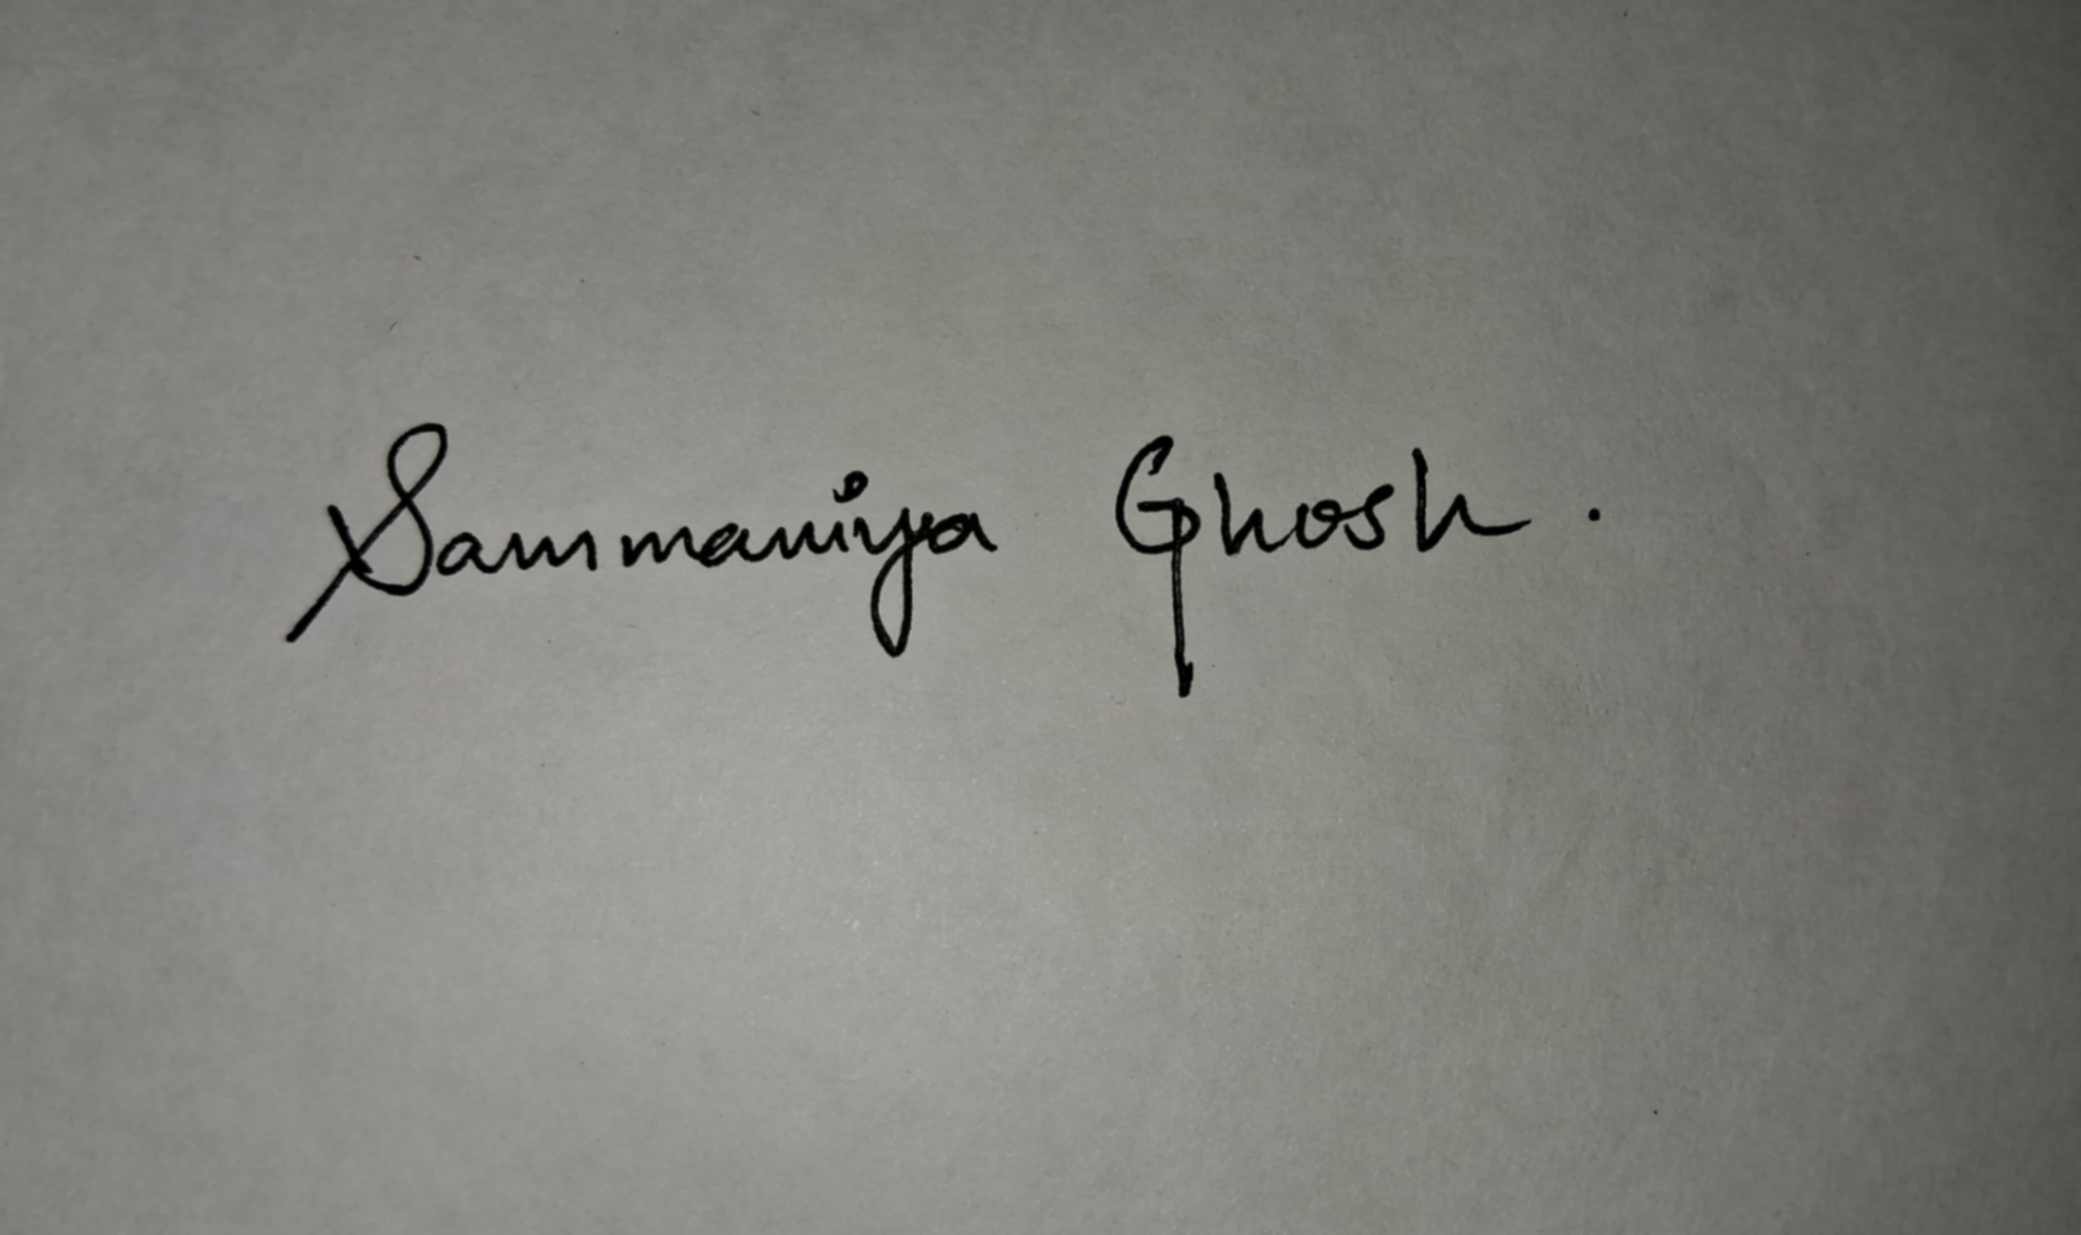 Sammaniya Ghosh.